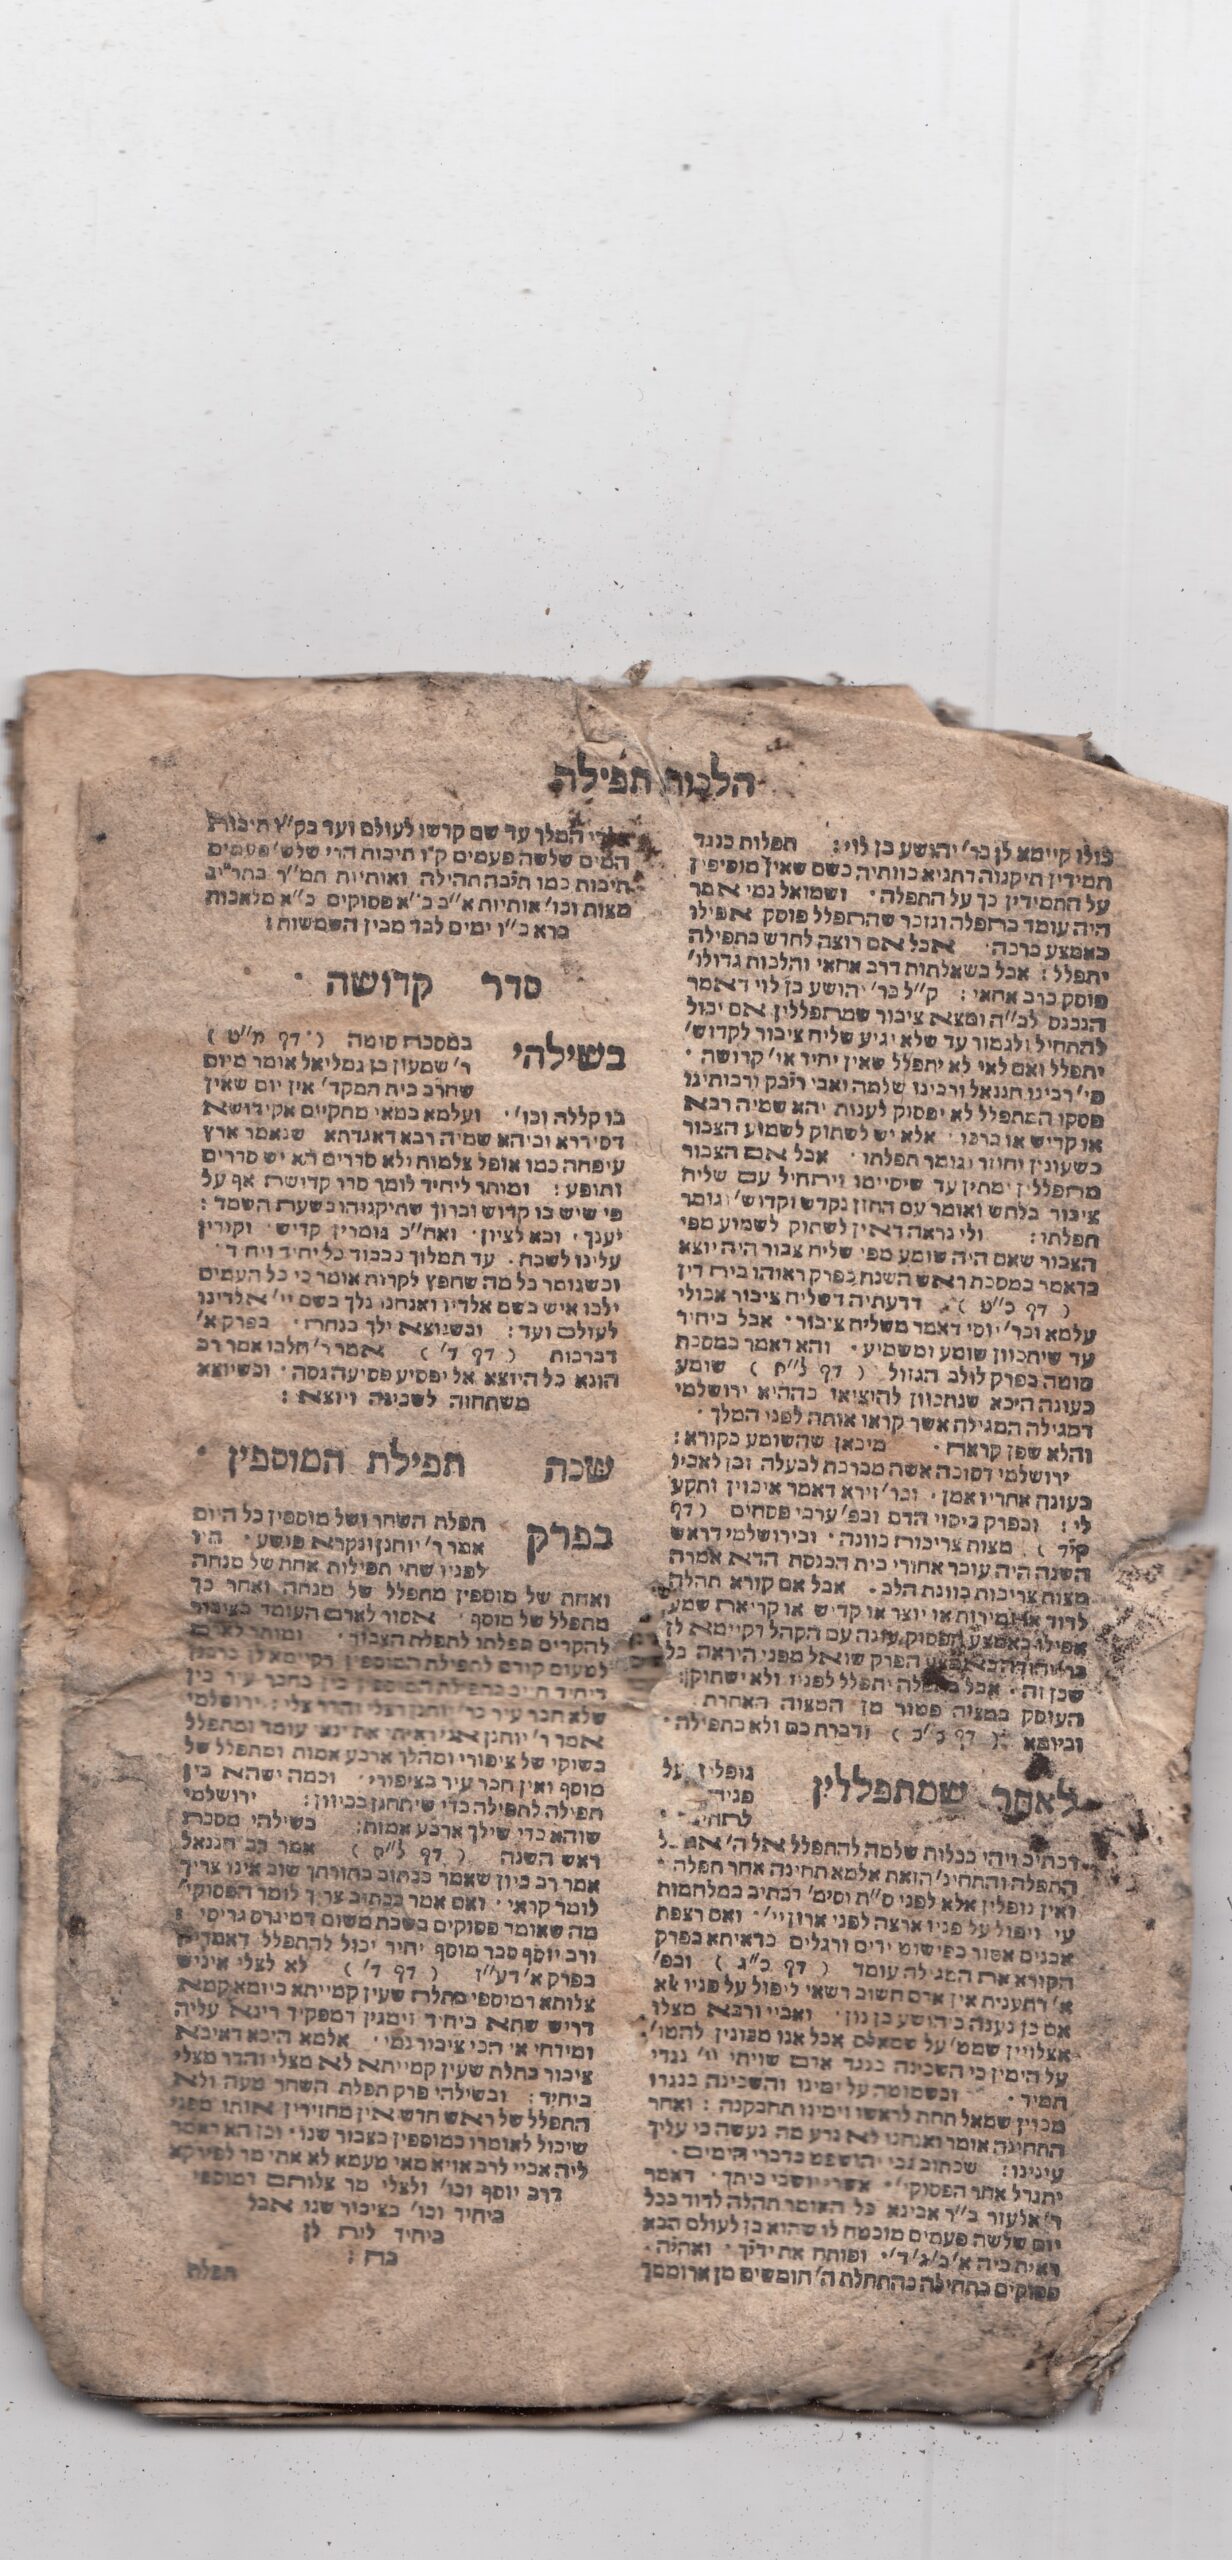 הלכות תפילה
כולו קיימא לן כר׳ יהושע בן לוי: תפלות כנגד
תמידין תיקנום דתניא כוותיה כשם שאין מוסיפין
על התמידין כך על התפלה· ושמואל נמי אמר
היה עומד בתפלה ונזכר שהתפלל פוסק אפילו
באמצע ברכה· אבל אם רוצה לחדש בתפילה
יתפלל: אבל בשאלתות דרב אחאי והלכות גדולו׳
פוסק כרב אחאי: ק״ל כר׳ יהושע בן לוי דאמר
הנכנס לב״ה ומצא ציבור שמתפללין אם יכול
להתחיל ולגמור עד שלא יגיע שליח ציבור לקדוש׳
יתפלל ואם לאו לא יתפלל שאין יחיד או׳ קדושה·
פי׳ רבינו חננאל ורבינו שלמה ואבי רי״בק ורבותינו
פסקו המתפלל לא יפסוק לענות יהא שמיה רבא
או קדיש או ברכו· אלא יש לשתוק לשמוע הצבור
כשעונין וחוזר וגומר תפלתו· אבל אם הצבור
מתפללין ימתין עד שיסיימו ויתחיל עם שליח
ציבור בלחש ואומר עם החזן נקדש וקדוש׳ וגומר
תפלתו: ולי נראה דאין לשתוק לשמוע מפי
הצבור שאם היה שומע מפי שליח צבור היה יוצא
כדאמר במסכת ראש השנה בפרק ראוהו בית דין
(דף כ״ט) דדעתיה דשליח ציבור אכולי
עלמא וכר׳ יוסי דאמר משליח ציבור· אבל ביחיד
עד שיתכוון שומע ומשמיע· והא דאמר במסכת
סוטה בפרק לולב הגזול (דף ל״ח) שומע
כעונה היכא שנתכוון להוציאו כההיא ירושלמי
דמגילה המגילה אשר קראו אותה לפני המלך·
והלא שפן קראה· מיכאן שהשומע כקורא:
ירושלמי דסוכה אשה מברכת לבעלה ובן לאביו
בעונה אחריו אמן· וכר׳ זירא דאמר איכוין ותקע
לי: ובפרק כיסוי הדם ובפ׳ ערבי פסחים (דף
קיד) מצות צריכות כוונה· ובירושלמי דראש
השנה היה עובר אחורי בית הכנסת הדא אמרה
מצות צריכות כוונת הלב· אבל אם קורא תהלה
לדוד או זמירות או יוצר או קדיש או קריאת שמע
אפילו באמצע הפסוק עונה עם הקהל דקיימא לן
כר׳ יהודה באמצע הפרק שואל מפני היראה כל
שכן זה· אבל יתפלל לפניו ולא ישתוק:
העוסק במצוה פטור מן המצוה האחרת
וביומא (דף כ״ב) ודברת בם ולא בתפילה·
לאחר שמתפללין נופלין על
פניה׳
דכתיב ויהי ככלות שלמה להתפלל אל ה׳
התפלה והתחינ׳ הזאת אלמא תחינה אחר תפלה·
ואין נופלין אלא לפני ס״ת וסימ׳ דכתיב במלחמות
עי ויפול על פניו ארצה לפני ארון יי׳· ואם רצפת
אבנים אסור בפישוט ידים ורגלים כדאיתא בפרק
הקורא את המגילה עומד (דף כ״ג) ובפ׳
א׳ דתענית אין אדם חשוב רשאי ליפול על פניו אא
אם כן נענה כיהושע בן נון· ואביי ורבא מצלו
אצלויין שמט׳ על שמאלם אבל אנו מכונין להטו׳
על הימין כי השכינה כנגד אדם שויתי יי׳ נגדי
תמיד· וכשמוטה על ימינו והשכינה כנגדו
מכוין שמאל תחת לראשו וימינו תחבקנה: ואחר
התחינה אומר ואנחנו לא נדע מה נעשה כי עליך
עינינו: שכתוב גבי יהושפט בדברי הימים·
יתגדל אחר הפסוקי׳· אשרי יושבי ביתך· דאמר
ר׳ אלעזר ב״ר אבינא כל האומר תהלה לדוד בכל
יום שלשה פעמים מובטח לו שהוא בן לעולם הבא
דאית ביה א׳ב׳ג׳ד׳· ופותח את ידיך·
פסוקים בתחילה בהתחלת ה׳ חומשים מן ארוממך
אלהי המלך עד שם קדשו לעולם ועד בק״ו תיבות
המים שלשה פעמים ק״ו תיבות הרי שלש׳ פעמים
תיבות כמו תי״בה תהילה ואותיות תמ״ר בתרי״ב
מצות וכו׳ אותיות א״ב כ״א פסוקים כ״א מלאכות
ברא כ״ו ימים לבד מבין השמשות:
סדר קדושה·
בשילהי במסכת סוטה (דף מ״ט)
ר׳ שמעון בן גמליאל אומר מיום
שחרב בית המקד׳ אין יום שאין
בו קללה וכו׳· ועלמא במאי מתקיים אקידושא
דסידרא וביהא שמיה רבא דאגדתא שנאמר ארץ
עיפתה כמו אופל צלמות ולא סדרים הא יש סדרים
ותופע: ומותר ליחיד לומר סדר קדושה אף על
פי שיש בו קדוש וברוך שתיקנוהו בשעת השמד:
יענך· ובא לציון· ואח״כ גומרין קדיש· וקורין
עלינו לשבח· עד תמלוך בכבוד כל יחיד ויחיד·
וכשגומר כל מה שחפץ לקרות אומר כי כל העמים
ילכו איש בשם אלהיו ואנחנו נלך בשם יי׳ אלהינו
לעולם ועד: וכשיוצא ילך בנחת· בפרק א׳
דברכות (דף ד׳) אמר ר׳ חלבו אמר רב
הונא כל היוצא אל יפסיע פסיעה גסה· וכשיוצא
משתחוה לשכינה ויוצא:
שכה תפילת המוספין·
בפרק תפלת השחר ושל מוספין כל היום
אמר ר׳ יוחנן ונקרא פושע· היו
לפניו שתי תפילות אחת של מנחה
ואחת של מוספין מתפלל של מנחה ואחר כך
מתפלל של מוסף· אסור לאדם העומד בציבור
להקדים תפלתו לתפלת הצבור· ומותר לאדם
לטעום קודם לתפילת המוספין דקיימא לן כרבנן
דיחיד חייב בתפילת המוספין בחבר עיר בין
שלא חבר עיר כר׳ יוחנן דצלי והדר צלי· ירושלמי
אמר ר׳ יוחנן אני ראיתי את ינאי עומד ומתפלל
בשוקי של ציפורי ומהלך ארבע אמות ומתפלל של
מוסף ואין חבר עיר בציפורי· וכמה ישהא בין
תפילה לתפילה כדי שיתחנן בכיוון: ירושלמי
שוהא כדי שילך ארבע אמות: בשילהי מסכת
ראש השנה (דף ל״ה) אמר רב חננאל
אמר רב כיון שאמר ככתוב בתורתך שוב אינו צריך
לומר קראי· ואם אמר ככתוב צריך לומר הפסוקי׳
מה שאומר פסוקים בשבת משום דמיגרס גריסי:
ורב יוסף סבר מוסף יחיד יכול להתפלל דאמרי׳
בפרק א׳ דע״ז (דף ד׳) לא לצלי איניש
צלותא דמוספי בתלת שעין קמייתא ביומא קמא
דריש שתא ביחיד זימנין דמפקיד דינא עליה
ומידחי אי הכי ציבור נמי· אלמא היכא דאיכא
ציבור בתלת שעין קמייתא לא מצלי והדר מצלי
ביחיד: ובשילהי פרק תפלת השחר טעה ולא
התפלל של ראש חדש אין מחזירין אותו מפני
שיכול לאומרו במוספין בצבור שנו· וכן הא דאמר
ליה אביי לרב אויא מאי טעמא לא אתי מר לפירקא
דרב יוסף וכו׳ ולצלי מר צלותם דמוספי
ביחיד וכו׳ בציבור שנו אבל
ביחיד לית לן
בה:
תפלת